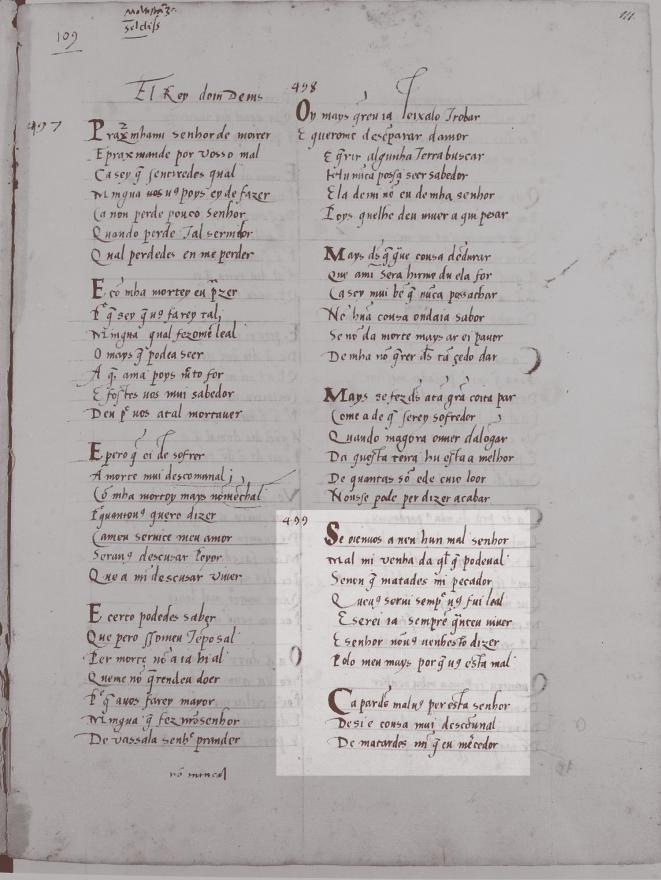 109
111
El Rey dom Denis
497
Praz mhami senhor de moirer
E praz mande por vosso mal
Ca sey q̃ sentiredes qual
Mingua vos u9 poys ey de fazer
Ca non perde pouco senhor
Quando perde Tal seruidor
Qual perdedes en me perder
E cō mha mortey eu p̃zer
P̃ q̃ sey q̃ u9 farey tal
Mingua qual fezome leal
O mays q̃ podea seer
A q̃ ama poys m̃to for
E fostes vos mui sabedor
Deu p̃ vos atal mort auer
E pero q̃ ei de sofrer
A morte mui descomunal
Cō mha mortoy mays nōmẽchal
P quanto u9 quero dizer
Ca meu seruice meu amor
Seran9 descusar peyor
Que a mi descusar viuer
E certo podedes saber
Que pero ssomeu Tēpo sal
Per morte nō a ia hi al
Queme nō q̃rendeu doer
P̃ q̃ auos farey mayor
Mingua q̃ fez nrō senhor
De vassala senhr prander
498
Oy mays q̃reu ia leixalo Trobar
E querome desēparar damor
E q̃rir algunha Terra buscar
hu nūca possa seer sabedor
Ela demi nō eu de mha senhor
Poys quelhe deu viuer a qui pesar
Mays ds̃ q̃ g̃ue cousa dēdurar
Que ami Sera hirme du ela for
Ca sey mui bē q̃ nūca possachar
Nē hūa cousa ondaia sabor
Se nō da morte mays ar ei pauor
De mha nō q̃rer ds̃ tā çedo dar
Mays se fez ds̃ ata grā coita par
Come a de q̃ serey sofredor
Quando magora ouuer dalōgar
Da questa terra hu esta a melhor
De quantas sō e de cuio loor
Nonsse pode per dizer acabar
499
Se oiemuos a nen hun mal senhor
Mal mi venha da q̃l q̃ pode ual
Senon q̃ matades mi pecador
Que u9 serui semp̃ e u9 fui leal
E serei ia sempre q̃nteu viuer
E senhor nōu9 uenhesto dizer
Polo meu mays por q̃ u9 esta mal
Ca par ds̃ malu9 per esta senhor
Desi e cousa mui descōunal
De matardes mi q̃ eu m̃ecedor